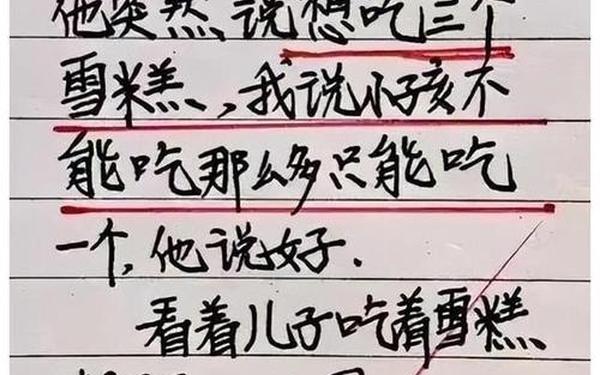 他突然说想吃三个
雪糕,我说小孩不
能吃那么多只能吃
一个,他说好.
看着儿子吃着雪糕